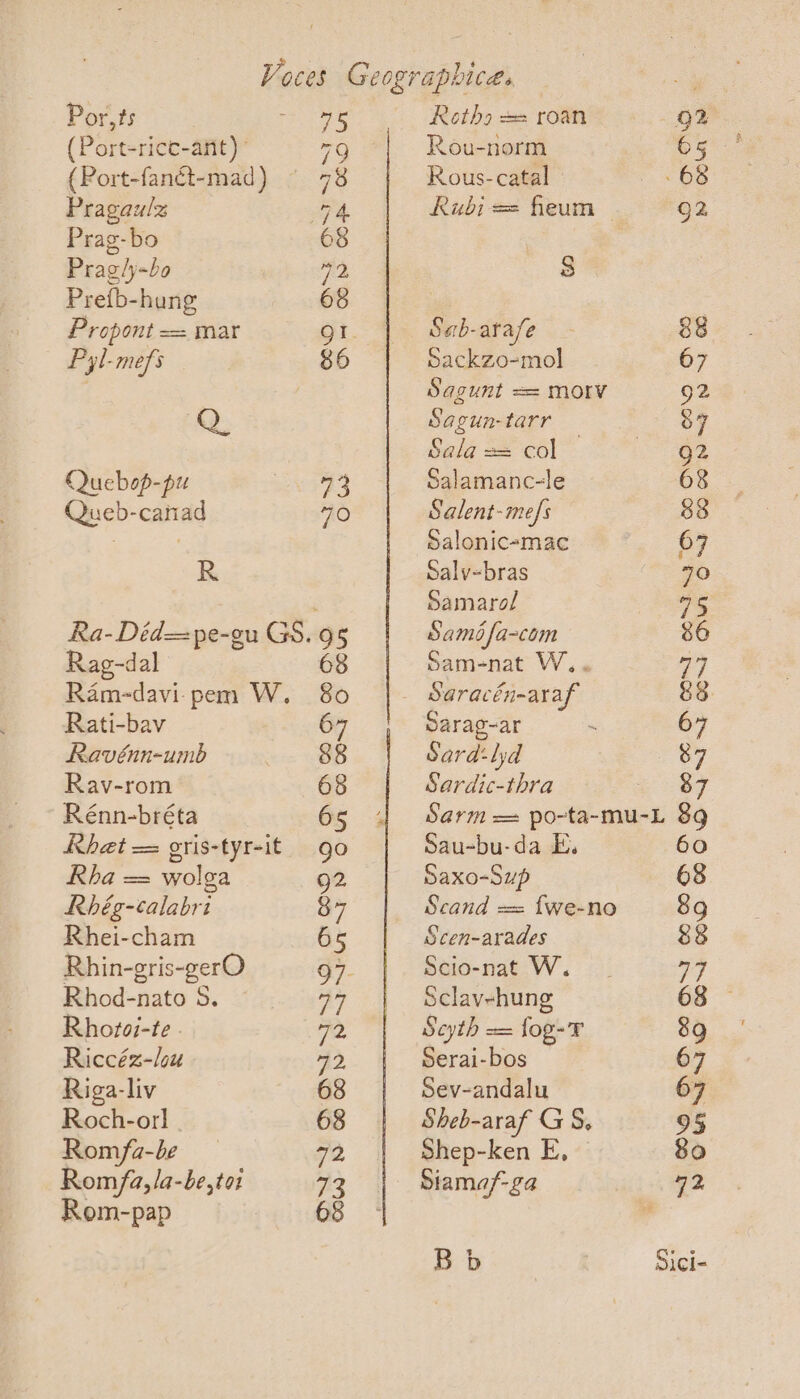 Voces Geographicæ.
Por,ts 75
(Port-ricc-ant) 79
(Port-ſanct-mad) 78
Pragaulz 74
Prag-bo 68
Pragly-bo 72
Preſb-hung 68
Propont == mar 91
Pyl-meſs 86
Q
Quebop-pu 73
Queb-canad 70
R
Ra-Déd==pe-gu GS. 95
Rag-dal 68
Rám-davi pem W. 80
Rati-bav 67
Ravénn-umb 88
Rav-rom 68
Rénn-bréta 65
Rhæt == gris-tyr-it 90
Rha == wolga 92
Rhég-calabri 87
Rhei-cham 65
Rhin-gris-gerO 97
Rhod-nato S. 77
Rhotoi-te 72
Riccéz-lou 72
Riga-liv 68
Roch-orl 68
Romſa-be 72
Romſa,la-be,toi 73
Rom-pap 68
Roths == roan 92
Rou-norm 65
Rous-catal 68
Rubi == ſieum 92
S
Sab-araſe 88
Sackzo-mol 67
Sagunt == morv 92
Sagun-tarr 87
Sala == col 92
Salamanc-le 68
Salent-meſs 88
Salonic-mac 67
Salv-bras 70
Samarol 75
Samóſa-com 86
Sam-nat W. 77
Saracén-araf 88
Sarag-ar 67
Sard-lyd 87
Sardic-thra 87
Sarm == po-ta-mu-L 89
Sau-bu-da E. 60
Saxo-Sup 68
Scand == ſwe-no 89
Scen-arades 88
Scio-nat W. 77
Sclav-hung 68
Scyth == ſog-T 89
Serai-bos 67
Sev-andalu 67
Sheb-araf G S. 95
Shep-ken E. 80
Siamaf-ga 72
B b Sici-